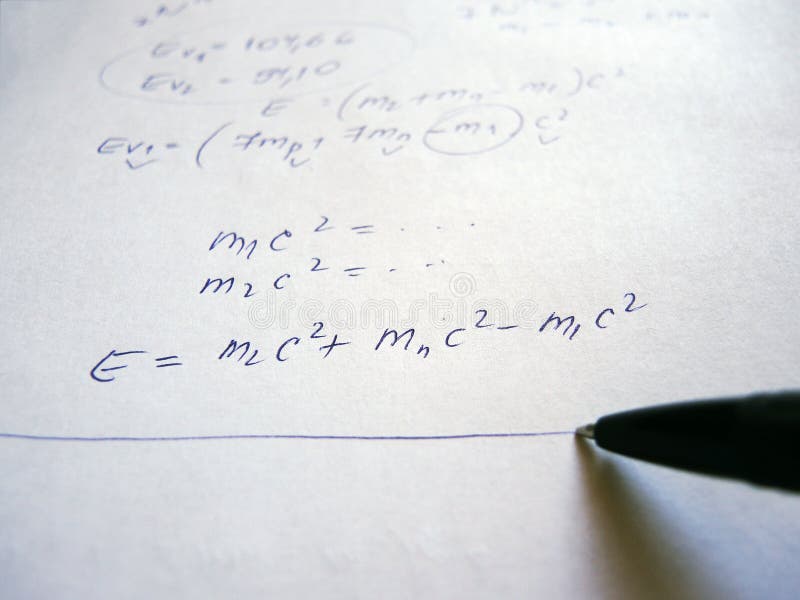 Ev₁ = 104,66
Ev₂ = 94,10
E = (m₂ + mₙ - m₁) c²
Ev₁ = ( 7mₚ + 7mₙ - m₁) c²
m₁ c² = . . .
m₂ c² = . . .
E = m₂ c² + mₙ c² - m₁ c²
dreamstime